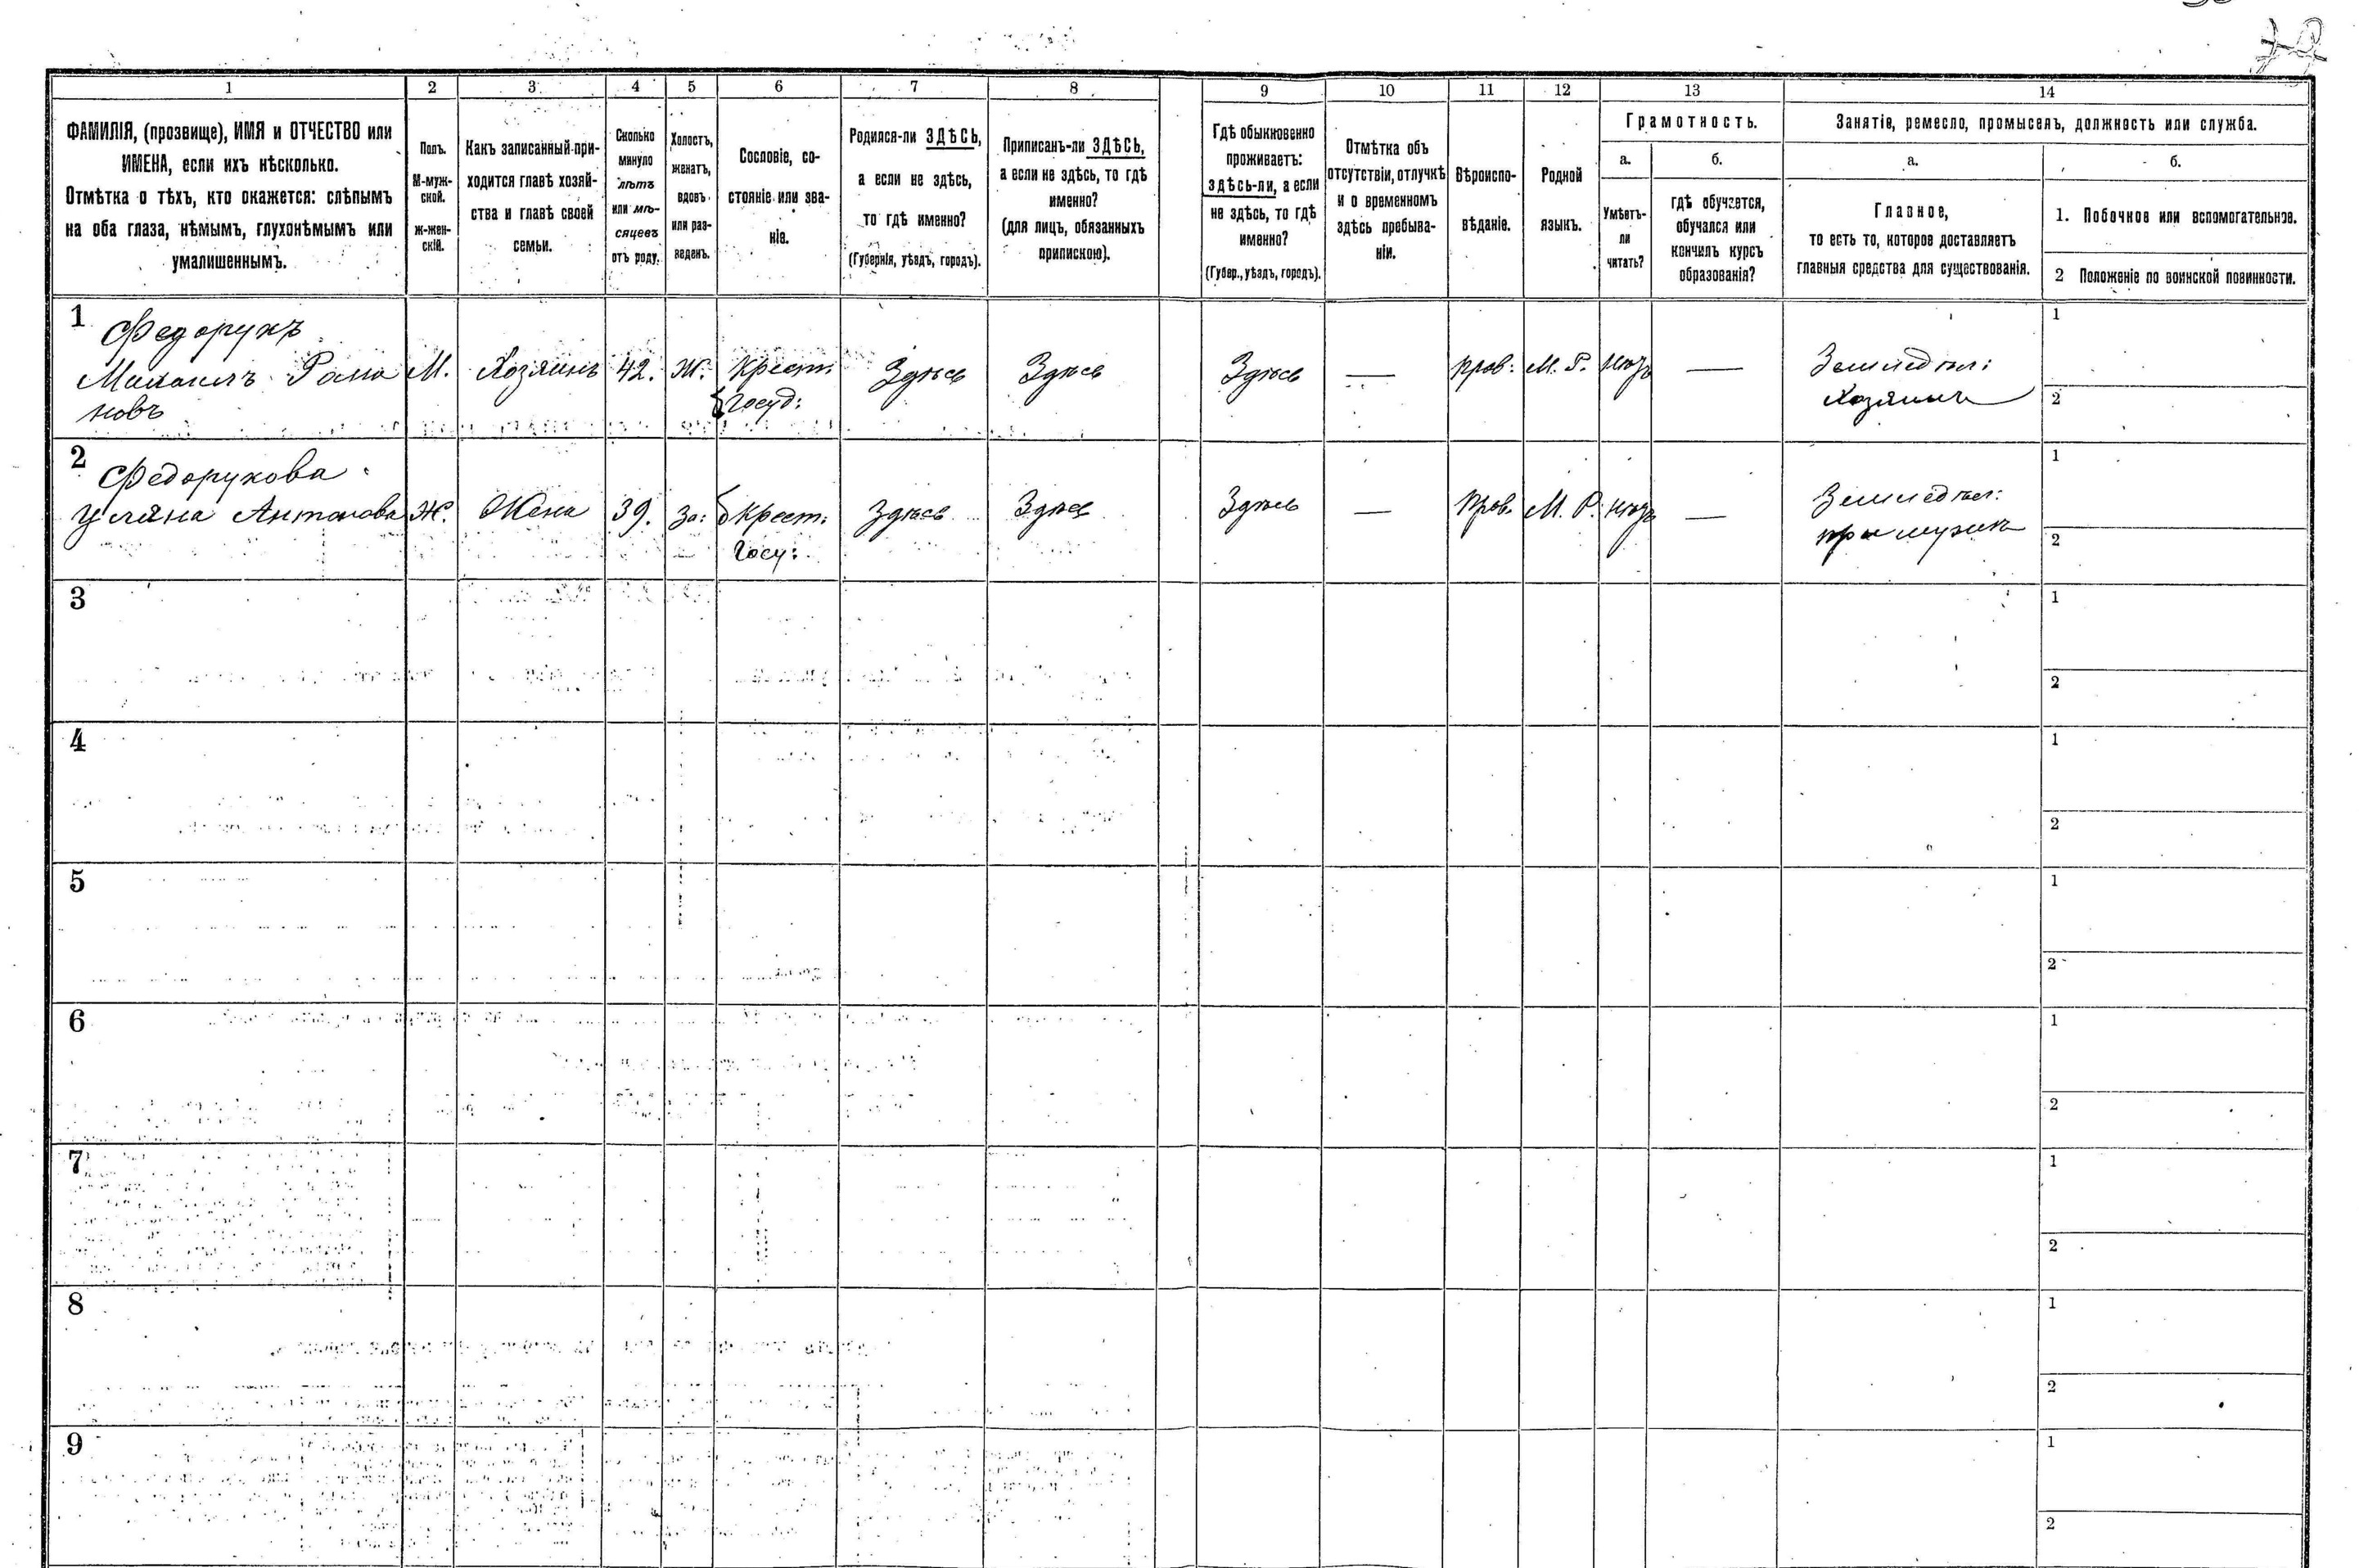 1 2 3 4 5 6 7 8 9 10 11 12 13 14
ФАМИЛІЯ, (прозвище), ИМЯ и ОТЧЕСТВО или
ИМЕНА, если ихъ нѣсколько.
Отмѣтка о тѣхъ, кто окажется: слѣпымъ
на оба глаза, нѣмымъ, глухонѣмымъ или
умалишеннымъ.
Полъ.
М-муж-
ской.
ж-жен-
скій.
Какъ записанный при-
ходится главѣ хозяй-
ства и главѣ своей
семьи.
Сколько
минуло
лѣтъ
или мѣ-
сяцевъ
отъ роду.
Холостъ,
женатъ,
вдовъ
или раз-
веденъ.
Сословіе, со-
стояніе или зва-
ніе.
Родился-ли ЗДѢСЬ,
а если не здѣсь,
то гдѣ именно?
(Губернія, уѣздъ, городъ).
Приписанъ-ли ЗДѢСЬ,
а если не здѣсь, то гдѣ
именно?
(для лицъ, обязанныхъ
припискою).
Гдѣ обыкновенно
проживаетъ:
здѣсь-ли, а если
не здѣсь, то гдѣ
именно?
(Губер., уѣздъ, городъ).
Отмѣтка объ
отсутствіи, отлучкѣ
и о временномъ
здѣсь пребыва-
ніи.
Вѣроиспо-
вѣданіе.
Родной
языкъ.
Грамотность.
а.
Умѣетъ-
ли
читать?
б.
гдѣ обучается,
обучался или
кончилъ курсъ
образованія?
Занятіе, ремесло, промыселъ, должность или служба.
а.
Главное,
то есть то, которое доставляетъ
главныя средства для существованія.
б.
1. Побочное или вспомогательное.
2 Положеніе по воинской повинности.
1
Федорукъ
Михаилъ Рома
новъ
М.
Хозяинъ
42.
Ж.
Крест.
б Госуд:
Здѣсь
Здѣсь
Здѣсь
—
прав:
М. Р.
нѣтъ
—
Земледѣл:
Хозяинъ
1
2
2
Федорукова
Уляна Антонова
Ж.
Жена
39.
За:
б Крест:
Госу:
Здѣсь
Здѣсь
Здѣсь
—
Прав.
М. Р.
нѣтъ
—
Земледѣл:
при мужѣ
1
2
3
1
2
4
1
2
5
1
2
6
1
2
7
1
2
8
1
2
9
1
2